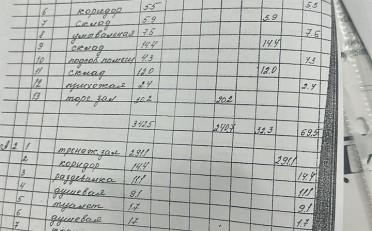 6 коридор 5.5 5.5
7 склад 5.9 5.9
8 умывальная 7.5 7.5
9 склад 14.4 14.4
10 подсоб. помещ 4.3 4.3
11 склад 12.0 12.0
12 прихожая 2.4 2.4
13 торг. зал 20.2 20.2
342.5 240.7 32.3 69.5
2 1 тренаж. зал 291.1 291.1
2 коридор 14.4 14.4
3 раздевалка 11.1 11.1
4 душевая 9.1 9.1
5 туалет 1.7 1.7
6 душевая 1.2
7